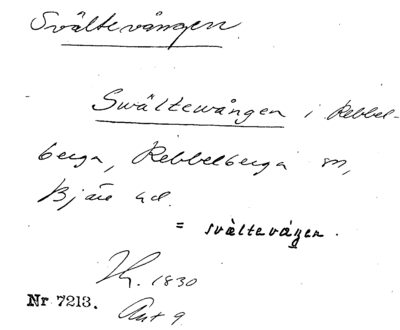 Svältevången
Swältewången i Rebbel-
berga, Rebbelberga sn,
Bjäre hd.
= svältevåŋen.
1830
Nr 7213. Akt 9